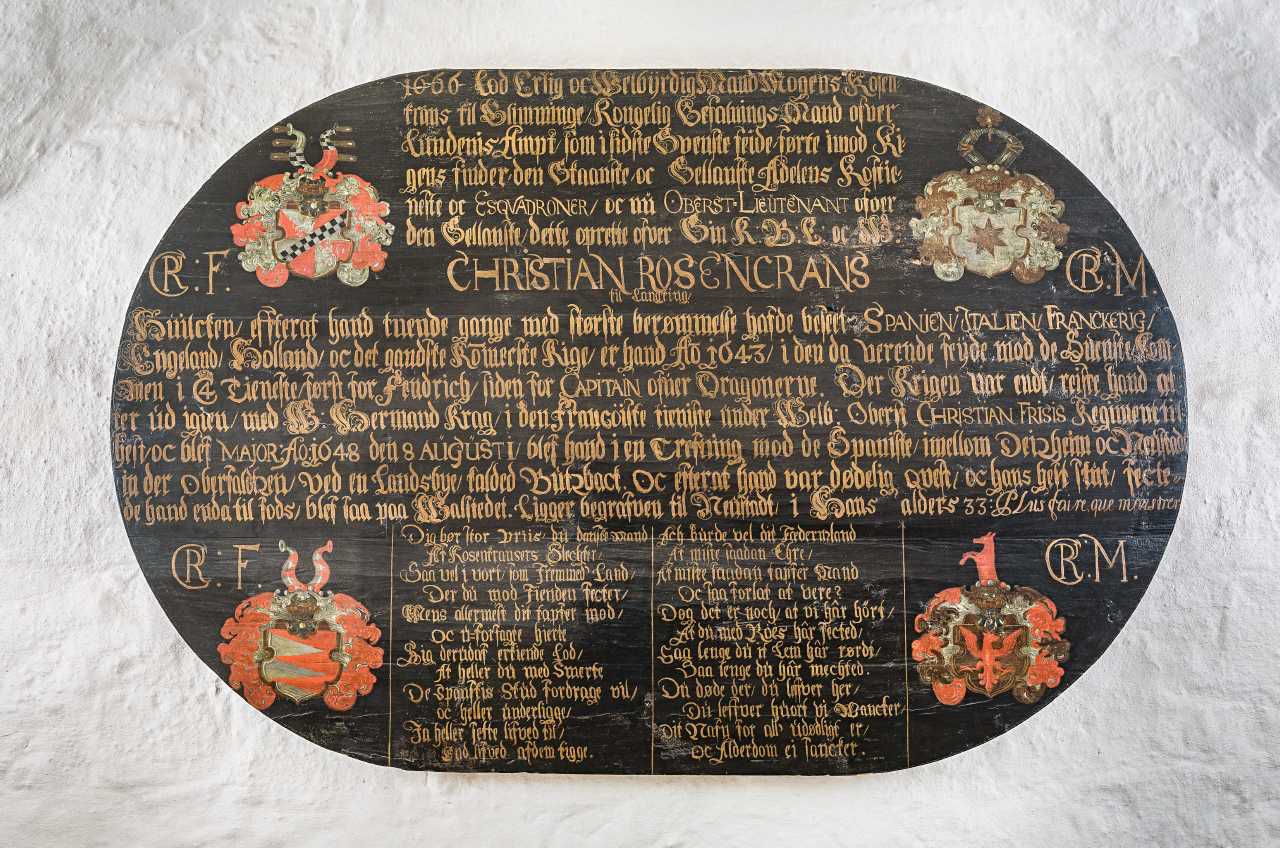 1666 Lod Erlig oc Welbyrdig Mand Mogens Rosen
krans til Glimminge/ Kongelig Befalnings Mand ofver
Lundenis Ampt som i sidste Svenste feide førte imod Ri
gens fiender den Skaanste oc Siellanste Adelens Rostie
neste oc ESQVADRONER/ oc nu OBERST-LIEUTENANT ofver
den Siellanste, dette oprette ofver Sin K. B. L. oc W
CHRISTIAN ROSENCRANS
til Langting/
CR. F.
CR. M
Huilcken/ effterat hand tuende gange med største berømmelse hafde beseet SPANIEN/ ITALIEN/ FRANCKERIG/
Engeland/ Holland/ oc det gandste Romerste Rige/ er hand Ao 1643/ i den da værende feyde mod de Suenste kom
men i Tieneste først for Fendrich/ siden for CAPITAIN ofver Dragonerne. Der Krigen var endt/ reiste hand at
ter ud igien/ med W. Hermand Krag/ i den Francoiste tieniste under Welb: Oberst CHRISTIAN FRISIS Regimente til
hest/ oc blef MAJOR. Ao. 1648 den 8 AUGUSTI/ blef hand i en Trefning mod de Spaniste/ imellom Deixheim oc Neustad
in der Oberfaltzen/ ved en Landsbye/ kalded Butzbact. Oc efterat hand var dødelig qvest/ oc hans hest stut/ fecte-
de hand enda til fods/ blef saa paa Walstedet. Ligger begrafven til Neustadt/ i Hans alders 33. Plus faire, que mourirer
CR : F.
CR. M.
Dig bør stor Priis/ du danste Mand
Af Rosenkransers Slechter/
Saa vel i vort/ som Fremmed Land/
Der du mod Fienden fecter/
Mens allermest dit tapfer mod/
Oc u-forsagte hierte
Sig derudaf erkiende lod/
At heller du med Smerte
De Spanstis Skud fordrage vil/
oc heller underligge/
Ja heller sette lifved til/
End lifved af dem tigge.
Ach burde vel dit Fæderneland
At miste saadan Ehre/
At miste saadan tapfer Mand
Oc saa forlat at vere?
Dog det er noch/ at vi har hørt/
At du med Roes har fected/
Saa lenge du it Lem har rørdt/
Saa lenge du har mechted.
Du døde der/ du lefver her/
Du lefver huort vi Wancker/
Dit Nafn for alb udødligt er/
oc Alderdom ei sancker.